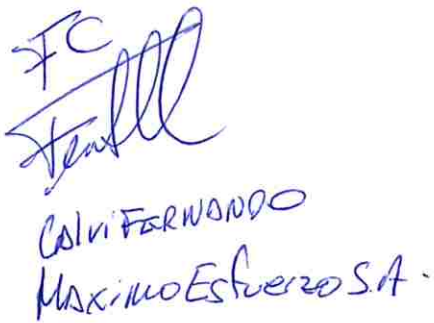 FC
Calvi FERNANDO
MAXIMO Esfuerzo S.A.